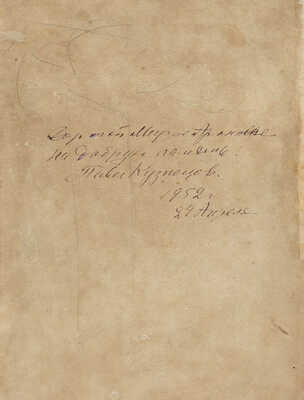 Дорогой
на добрую память.
Павел Кузнецов.
1952 г
29 Апреля